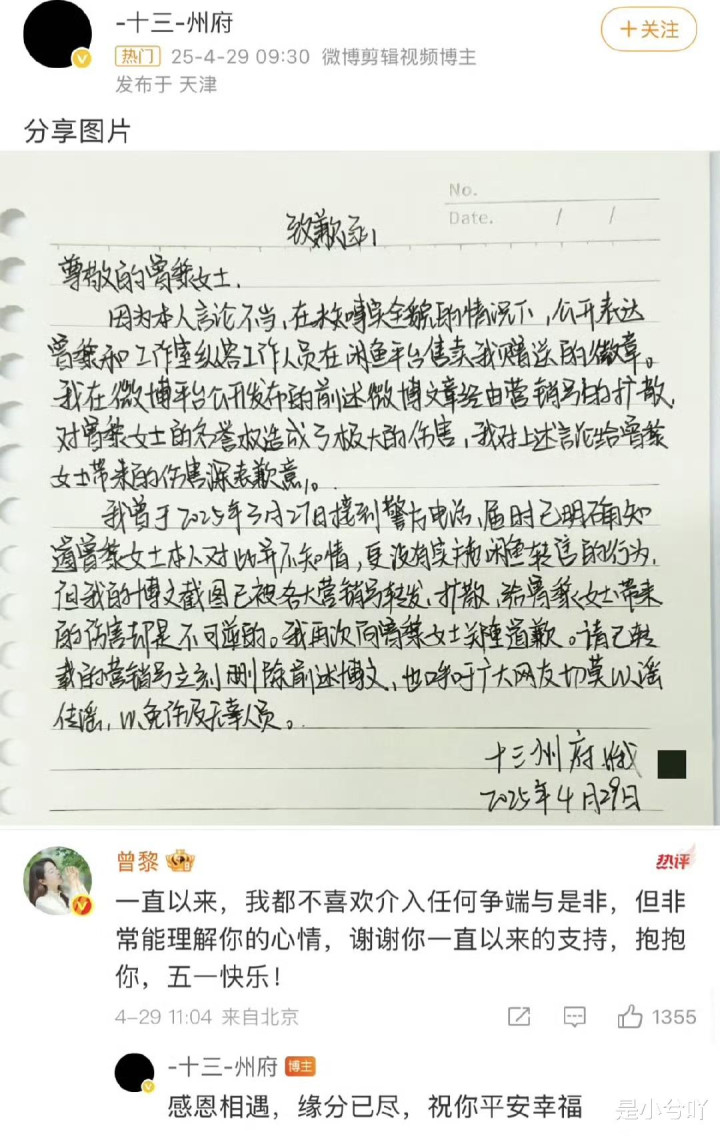 -十三-州府
+关注
热门 25-4-29 09:30 微博剪辑视频博主
发布于 天津
分享图片
No.
Date. / /
致歉函
尊敬的曾黎女士,
因为本人言论不当,在未知晓全貌的情况下,公开表达
曾黎和工作室纵容工作人员在闲鱼平台售卖我赠送的徽章。
我在微博平台公开发布的前述微博文章经由营销号的扩散,
对曾黎女士的名誉权造成了极大的伤害,我对上述言论给曾黎
女士带来的伤害深表歉意。
我曾于2025年3月27日接到警方电话,届时已明确知
道曾黎女士本人对此并不知情,更没有实施闲鱼转售的行为,
但我的博文截图已被各大营销号转发、扩散,给曾黎女士带来
的伤害却是不可逆的。我再次向曾黎女士郑重道歉。请已转
载的营销号立刻删除前述博文,也呼吁广大网友切莫以谣
传谣,以免伤及无辜人员。
十三州府
2025年4月29日
曾黎
热评
一直以来,我都不喜欢介入任何争端与是非,但非
常能理解你的心情,谢谢你一直以来的支持,抱抱
你,五一快乐!
4-29 11:04 来自北京
1355
-十三-州府 博主
感恩相遇,缘分已尽,祝你平安幸福
是小兮吖